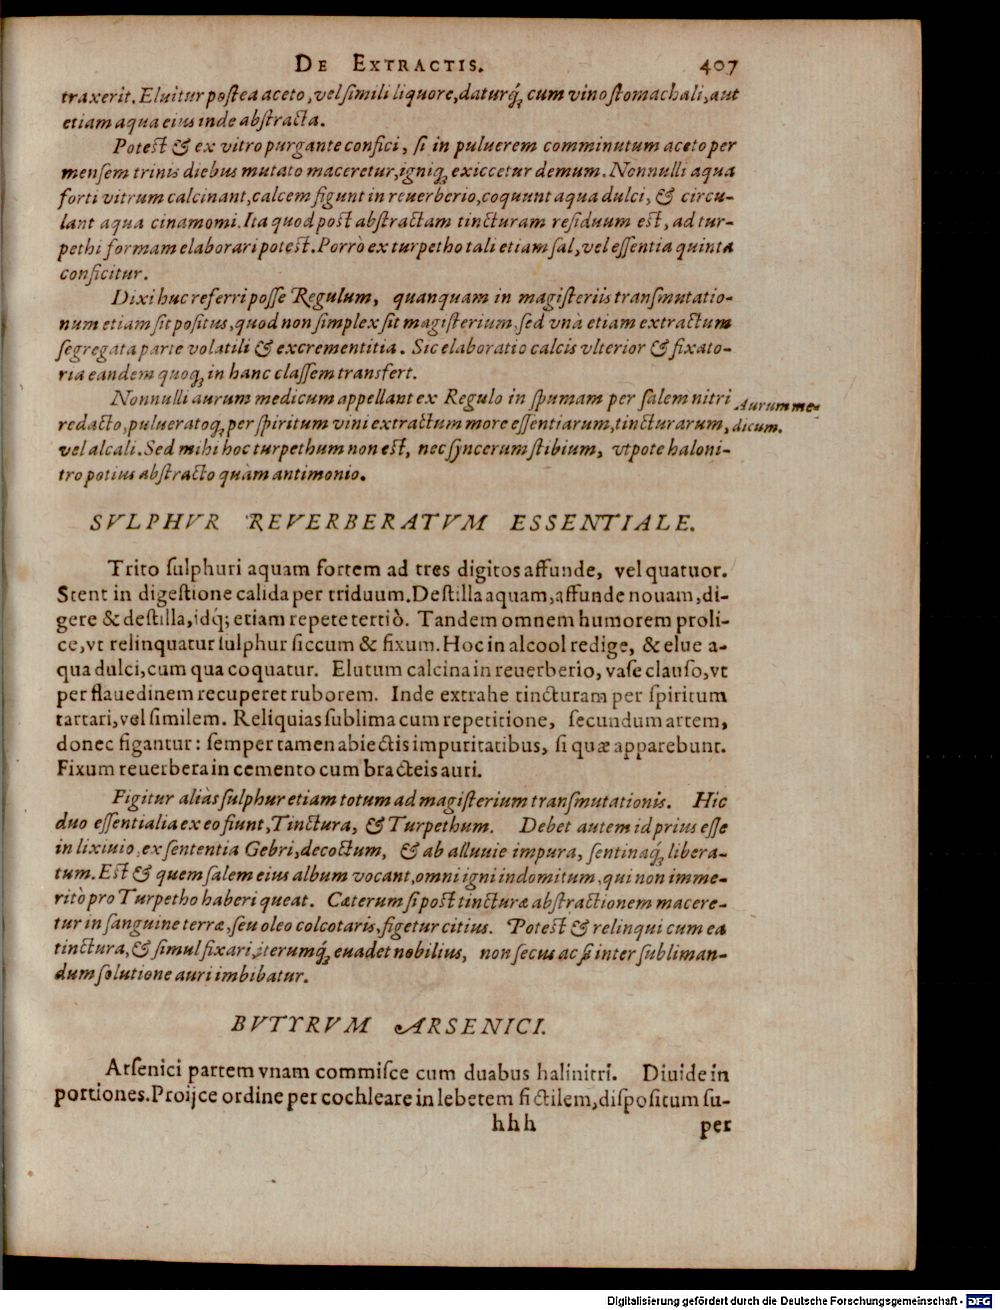 DE EXTRACTIS. 407
traxerit. Eluitur postea aceto, vel simili liquore, daturq́ꝫ cum vino stomachali, aut
etiam aqua eius inde abstracta.
Potest & ex vitro purgante confici, si in puluerem comminutum aceto per
mensem trinis diebus mutato maceretur, igniqꝫ exiccetur demum. Nonnulli aqua
forti vitrum calcinant, calcem figunt in reuerberio, coquunt aqua dulci, & circu-
lant aqua cinamomi. Ita quod post abstractam tincturam residuum est, ad tur-
pethi formam elaborari potest. Porrò ex turpetho tali etiam sal, vel essentia quinta
conficitur.
Dixi huc referri posse Regulum, quanquam in magisteriis transmutatio-
num etiam sit positus, quod non simplex sit magisterium, sed vnà etiam extractum
segregata parte volatili & excrementitia. Sic elaboratio calcis vlterior & fixato-
ria eandem quoqꝫ in hanc classem transfert.
Nonnulli aurum medicum appellant ex Regulo in spumam per salem nitri
Aurum me-
redacto, pulueratoqꝫ per spiritum vini extractum more essentiarum, tincturarum,
dicum.
vel alcali. Sed mihi hoc turpethum non est, nec syncerum stibium, vtpote haloni-
tro potius abstracto quàm antimonio.
SVLPHVR REVERBERATVM ESSENTIALE.
Trito sulphuri aquam fortem ad tres digitos affunde, vel quatuor.
Stent in digestione calida per triduum. Destilla aquam, affunde nouam, di-
gere & destilla, idq́; etiam repete tertiò. Tandem omnem humorem proli-
ce, vt relinquatur sulphur siccum & fixum. Hoc in alcool redige, & elue a-
qua dulci, cum qua coquatur. Elutum calcina in reuerberio, vase clauso, vt
per flauedinem recuperet ruborem. Inde extrahe tincturam per spiritum
tartari, vel similem. Reliquias sublima cum repetitione, secundum artem,
donec figantur: semper tamen abiectis impuritatibus, si quæ apparebunt.
Fixum reuerbera in cemento cum bracteis auri.
Figitur aliàs sulphur etiam totum ad magisterium transmutationis. Hic
duo essentialia ex eo fiunt, Tinctura, & Turpethum. Debet autem id prius esse
in lixiuio, ex sententia Gebri, decoctum, & ab alluuie impura, sentinaq́ꝫ libera-
tum. Est & quem salem eius album vocant, omni igni indomitum, qui non imme-
ritò pro Turpetho haberi queat. Cæterum si post tincturæ abstractionem macere-
tur in sanguine terræ, seu oleo colcotaris, figetur citius. Potest & relinqui cum ea
tinctura, & simul fixari, iterumq́ꝫ euadet nobilius, non secus ac si inter subliman-
dum solutione auri imbibatur.
BVTYRVM ARSENICI.
Arsenici partem vnam commisce cum duabus halinitri. Diuide in
portiones. Proijce ordine per cochleare in lebetem fictilem, dispositum su-
hhh per
Digitalisierung gefördert durch die Deutsche Forschungsgemeinschaft - DFG